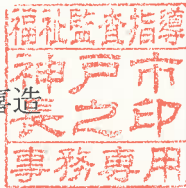 福祉監査指導
神戸市
長之印
事務専用
造